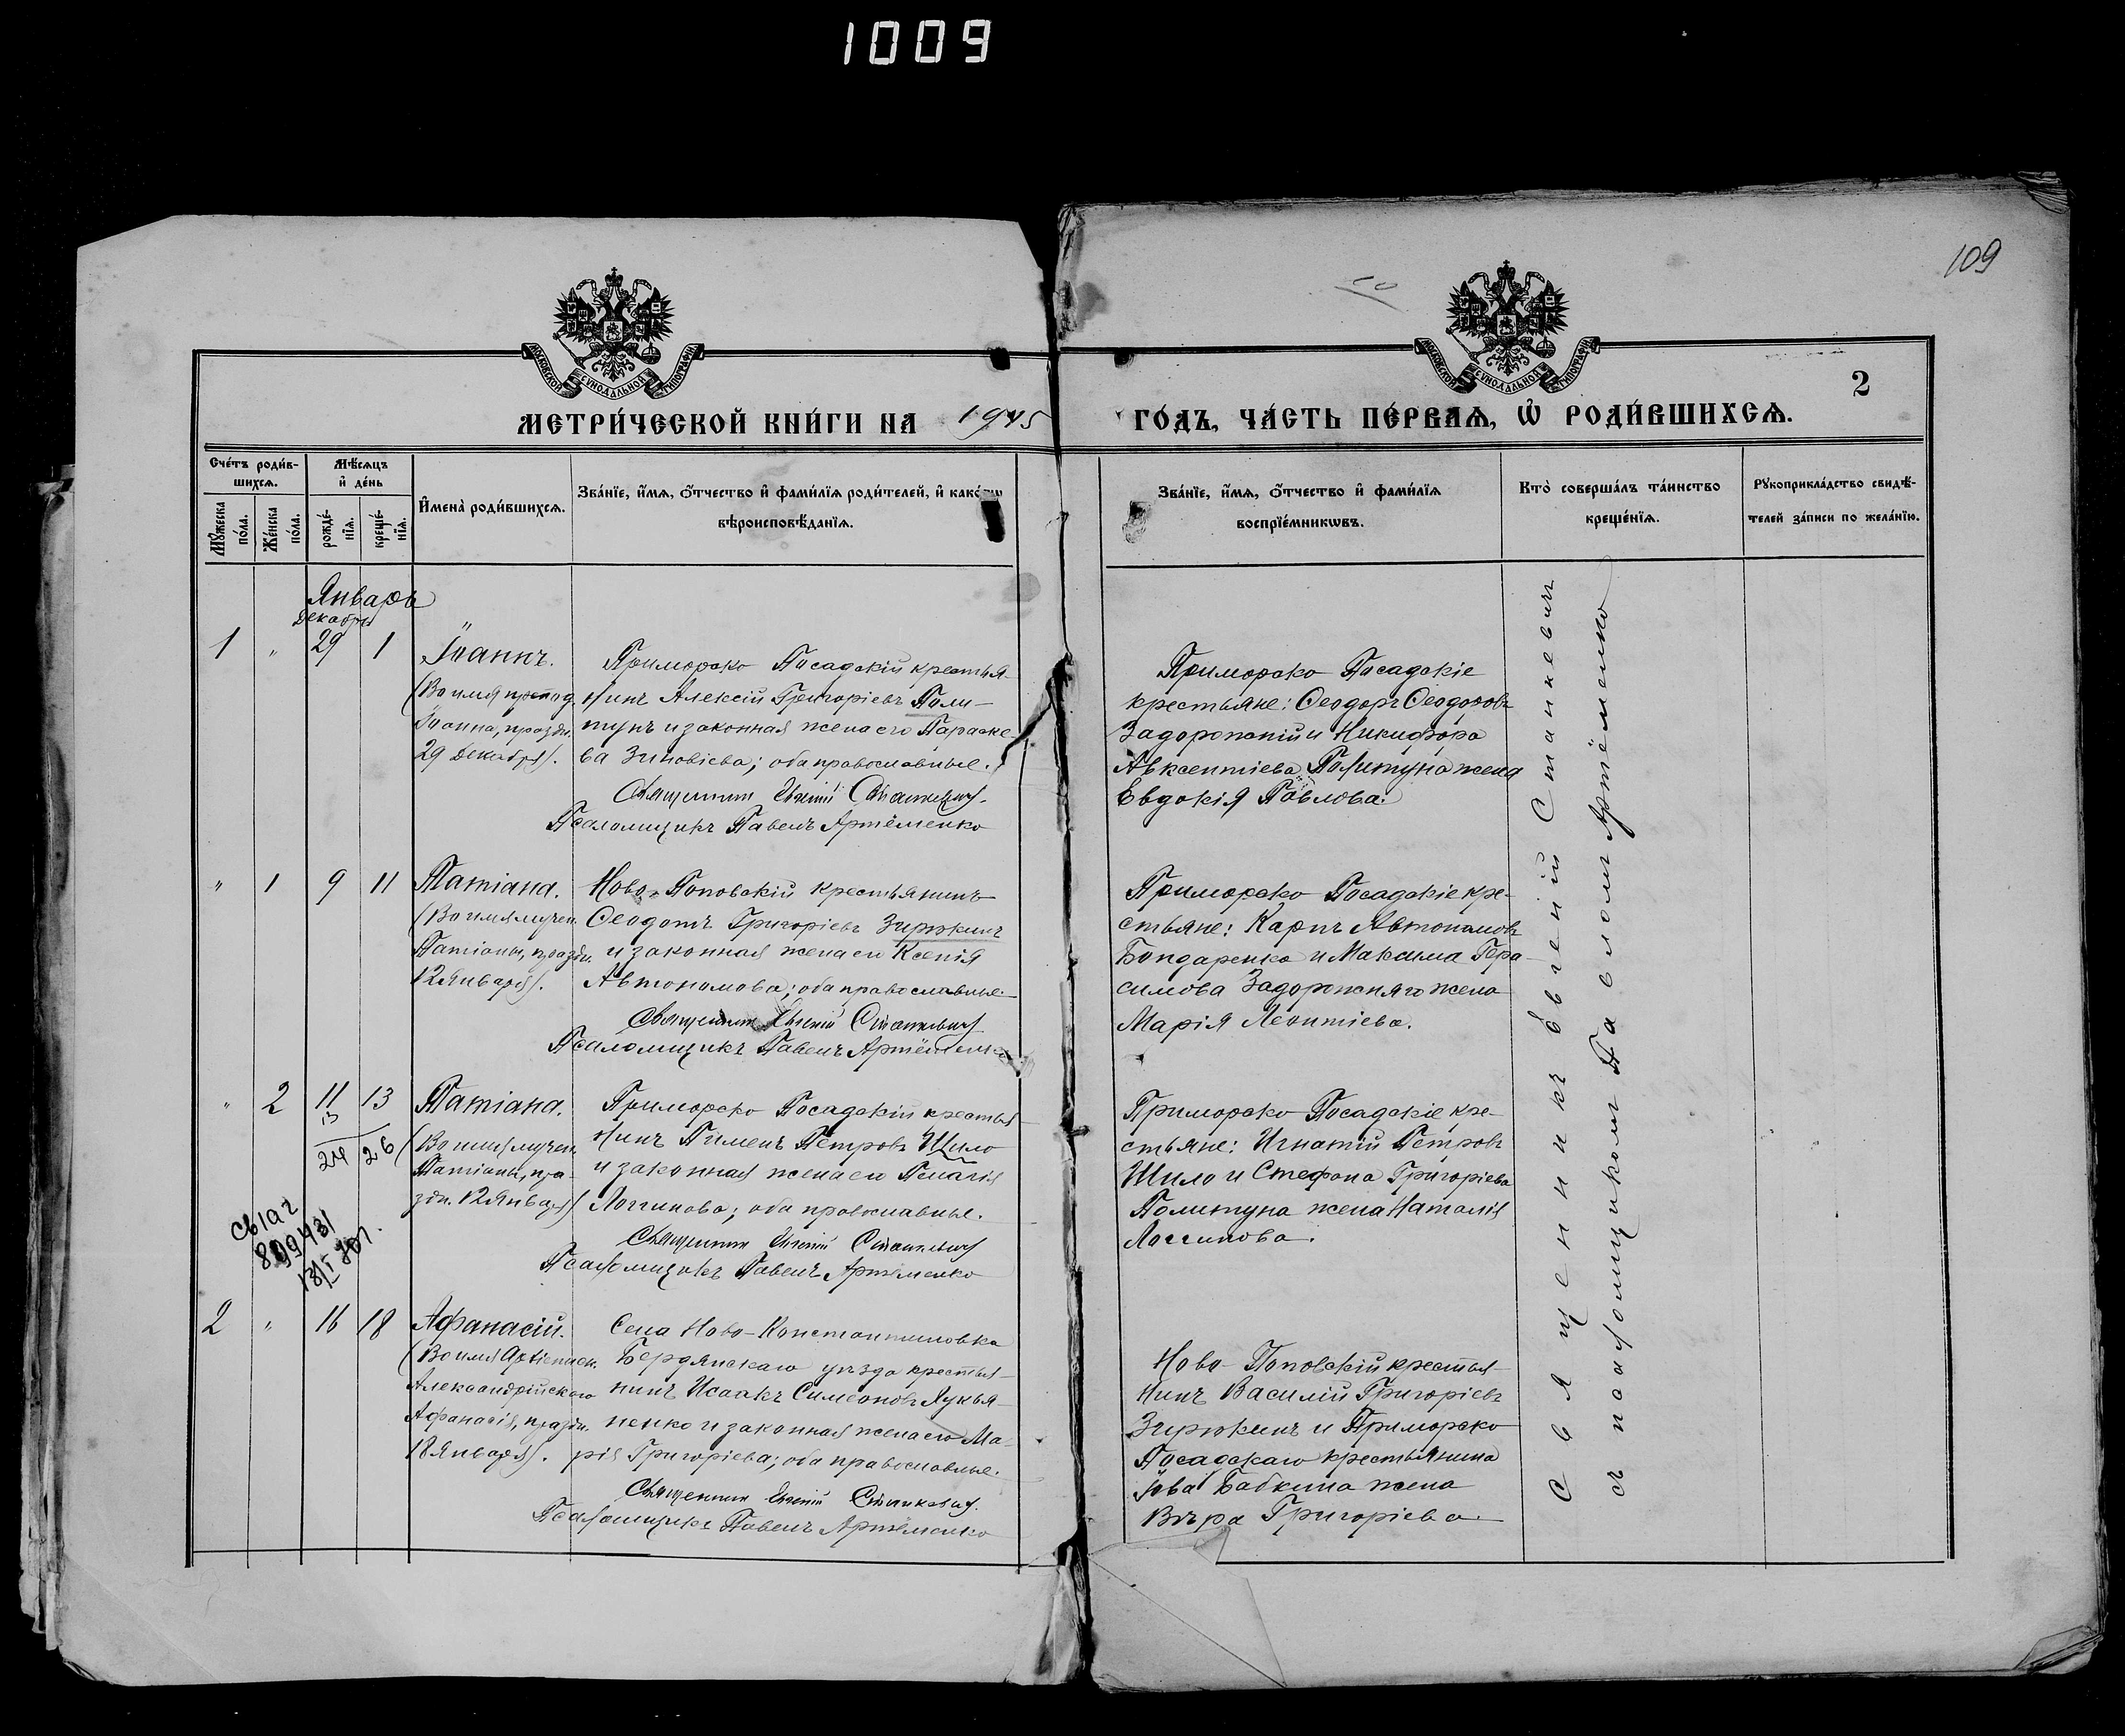 1009
109
МОСКОВСКОЙ СУНОДАЛЬНОЙ ТИПОГРАФІИ
МОСКОВСКОЙ СУНОДАЛЬНОЙ ТИПОГРАФІИ
2
МЕТРИ́ЧЕСКОЙ КНИ́ГИ НА
ГО́ДЪ, ЧА́СТЬ ПЕ́РВАѦ, Ѽ РОДИ́ВШИХСѦ.
Сче́тъ роди́в-
шихсѧ.
Мѣ́сѧцъ
и҆ де́нь
Мꙋ́жеска по́ла.
Же́нска по́ла.
рожде́-нїѧ.
креще́-нїѧ.
И҆мена̀ роди́вшихсѧ.
Зва́нїе, и҆́мѧ, ѻ҆́тчество и҆ фами́лїѧ роди́телей, и҆ како́гѡ
вѣроисповѣ́данїѧ.
Зва́нїе, и҆́мѧ, ѻ҆́тчество и҆ фами́лїѧ
воспрїе́мникѡвъ.
Кто̀ соверша́лъ та́инство
креще́нїѧ.
Рꙋкоприкла́дство свидѣ́-
телей за́писи по жела́нїю.
Январь
Декабря
1 " 29 1
Іоаннъ.
(Во имя препод.
Іоанна, праздн.
29 Декабря).
Приморско Посадскій крестья-
нинъ Алексій Григоріевъ Поли-
тунъ и законная жена его Параске-
ва Зиновіева; оба православные.
Священникъ Евгеній Станкевичъ.
Псаломщикъ Павелъ Артёменко
Приморско Посадскіе
крестьяне: Ѳеодоръ Ѳеодоровъ
Задорожній и Никифора
Авксентіева Политуна жена
Евдокія Павлова.
" 1 9 11
Татіана.
(Во имя мучен.
Татіаны, праздн.
12 Января).
Ново-Поповскій крестьянинъ
Ѳеодотъ Григоріевъ Зирюкинъ
и законная жена его Ксенія
Автономова; оба православные
Священникъ Евгеній Станкевичъ
Псаломщикъ Павелъ Артёменко
Приморско Посадскіе кре-
стьяне: Карпъ Автономовъ
Бондаренко и Максима Гера-
симова Задорожняго жена
Марія Леонтіева.
" 2 11 13
13
24 26
Татіана.
(Во имя мучен.
Татіаны, пра-
здн. 12 Января)
Приморско Посадскій крестья-
нинъ Пименъ Петровъ Шило
и законная жена его Пелагія
Логгинова; оба православные.
Священникъ Евгеній Станкевичъ
Псаломщикъ Павелъ Артёменко
Приморско Посадскіе кре-
стьяне: Игнатій Петровъ
Шило и Стефана Григоріева
Политуна жена Наталія
Логгинова.
2 " 16 18
Аѳанасій.
(Во имя Архіеписк.
Александрійскаго
Аѳанасія, праздн.
18 Января).
Села Ново-Константиновка
Бердянскаго уѣзда крестья-
нинъ Исаакъ Симеоновъ Лукья-
ненко и законная жена его Ма-
рія Григоріева; оба православные.
Священникъ Евгеній Станкевичъ.
Псаломщикъ Павелъ Артёменко
Ново-Поповскій крестья-
нинъ Василій Григоріевъ
Зирюкинъ и Приморско
Посадскаго крестьянина
Іова Бабкина жена
Вѣра Григоріева.
Священникъ Евгеній Станкевичъ
съ псаломщикомъ Павломъ Артёменко